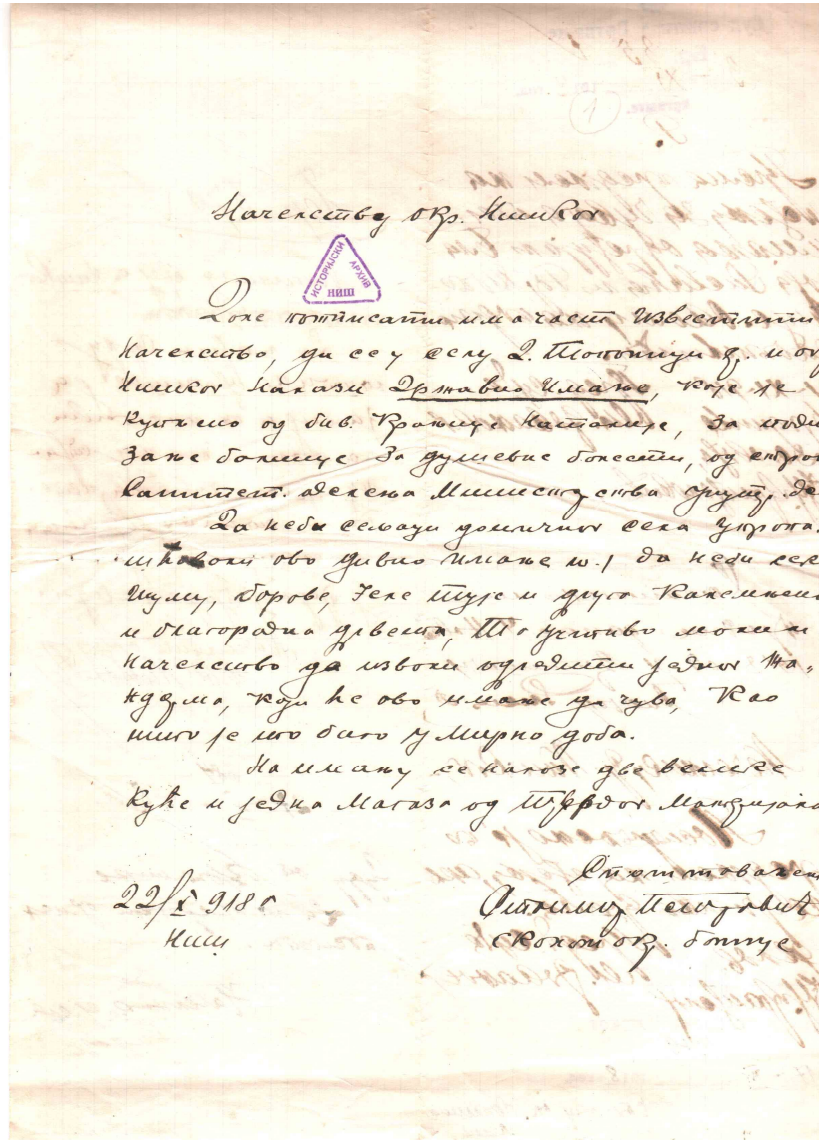 1
Начелству окр. Нишког
ИСТОРИЈСКИ АРХИВ
НИШ
Доле потписати има част известити
Начелство, да се у селу Д. Топоници ср. и окр
Нишког налази Државно Имање, које је
купљено од бив. Краљице Наталије, за поди
зање болнице за душевне болести, од стран
Санитет. одељења Министарства унутр. де
Да неби сељаци домичног села упропа.
ово дивно имање т.ј да неби секл
шуму, борове, јеле тује и друга
и благородна дрвета, то учтиво молим
начелство да изволи одредити једног жа„
ндарма, који ће ово имање да чува, као
што је то било у мирно доба.
На имању се налазе две велике
куће и једна магаза од тврдог материјала
22/X 918 г
Ниш
С поштовањем
Стоимир Петровић
економ окр. болнице